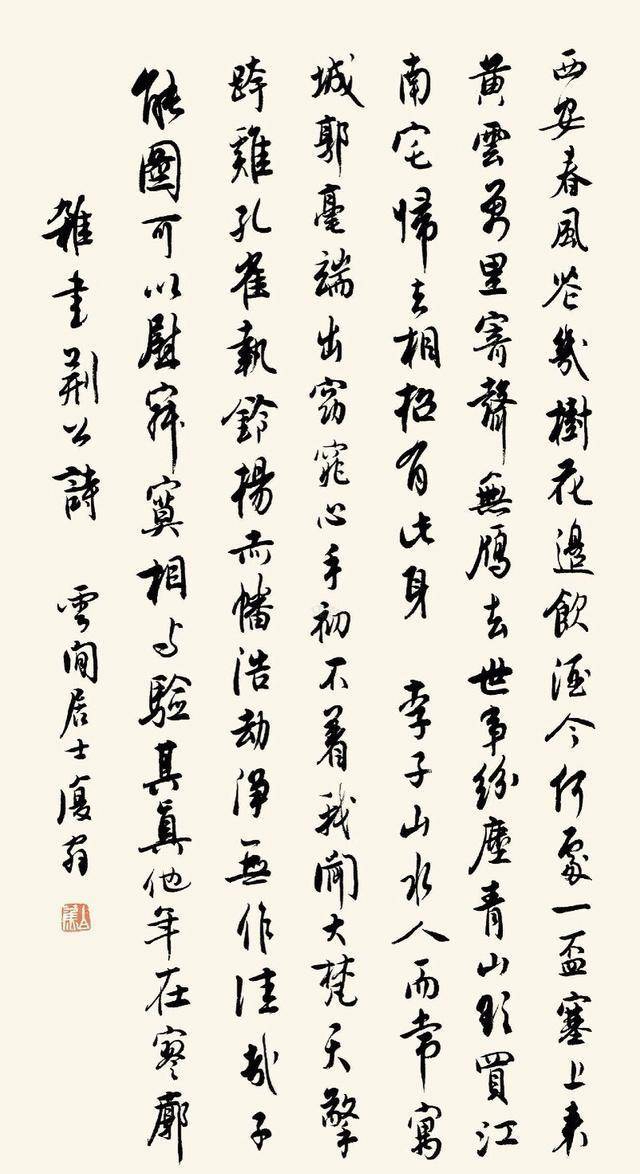 西安春風花幾樹花邊飲酒今何處一盃塞上來
黄雲萬里寄聲無鴈去世事紛塵青山欲買江
南宅歸去相招有此身 李子山水人而常寓
城郭毫端出窈窕心手初不着我聞大梵天擎
跨雞孔雀執鈴揚赤幡浩劫淨無作佳哉子
能圖可以慰寂寞相与驗其真他年在寥廓
雜書荆公詩 雲間居士復翁